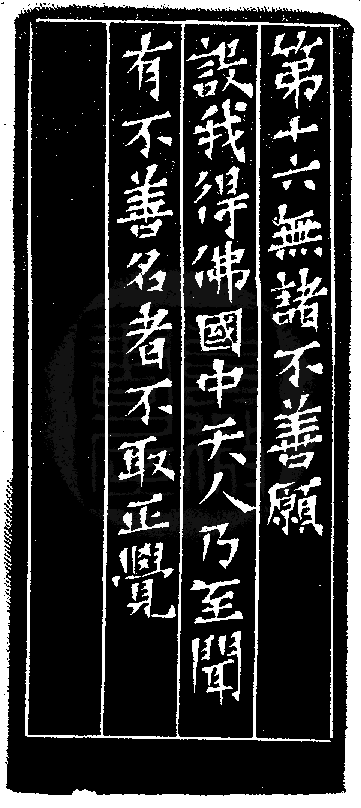 第十六無諸不善願
設我得佛國中天人乃至聞
有不善名者不取正覺